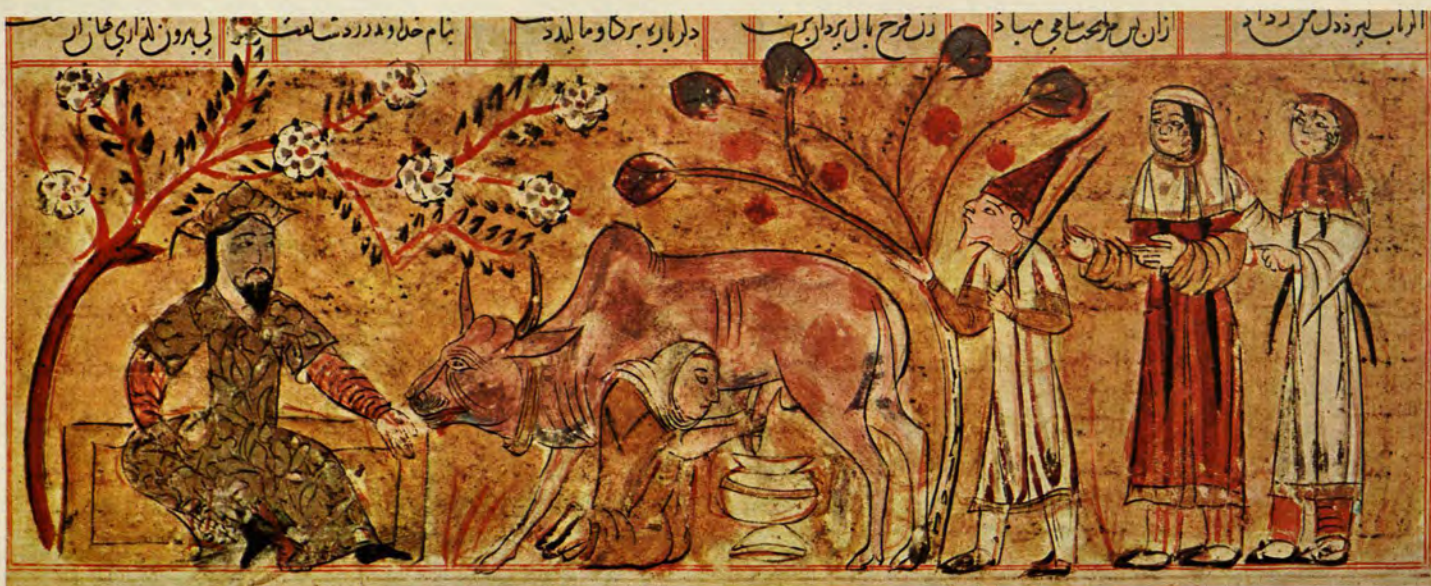 اگر تاب گیرد دل من ز داد ازان پس مرا تخت شاهی مباذ زن فرخ پاک یزدان پرست دگر باره بر گاو مالید دست بنام خداوند زردشت گفت کی بیرون گذاری نهان از